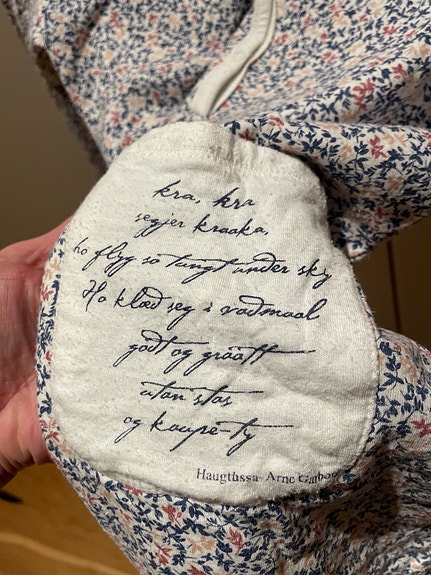 kra, kra
segjer kraaka,
ho flyg so tungt under sky
Ho klæd seg i vadmaal
godt og graatt
utan stas
og kaupe-ty
Haugtussa- Arne Garborg